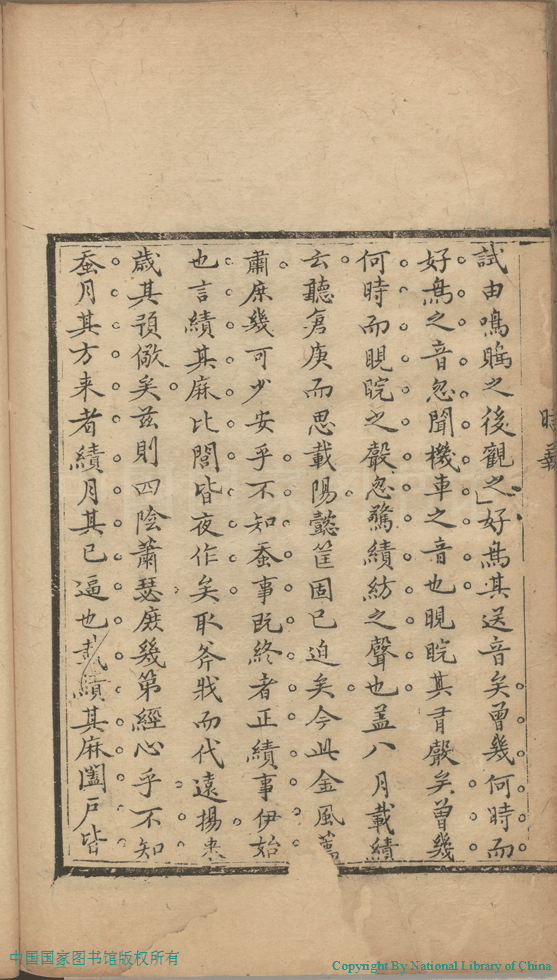 試由鳴鵙之後觀之好鳥其送音矣曾幾何時而
好鳥之音忽聞機車之音也睍睆其有聲矣曾幾
何時而睍睆之聲忽驚績紡之聲也蓋八月載績
云聽倉庚而思載陽懿筐固已迫矣今此金風
肅庶幾可少安乎不知蚕事既終者正績事伊始
也言績其麻比閭皆夜作矣取斧戕而代遠揚来
歳其預儆矣茲則四陰蕭瑟庶幾第經心乎不知
蚕月其方来者績月其已逼也載績其麻闔戸皆
中国国家图书馆版权所有
Copyright By National Library of China